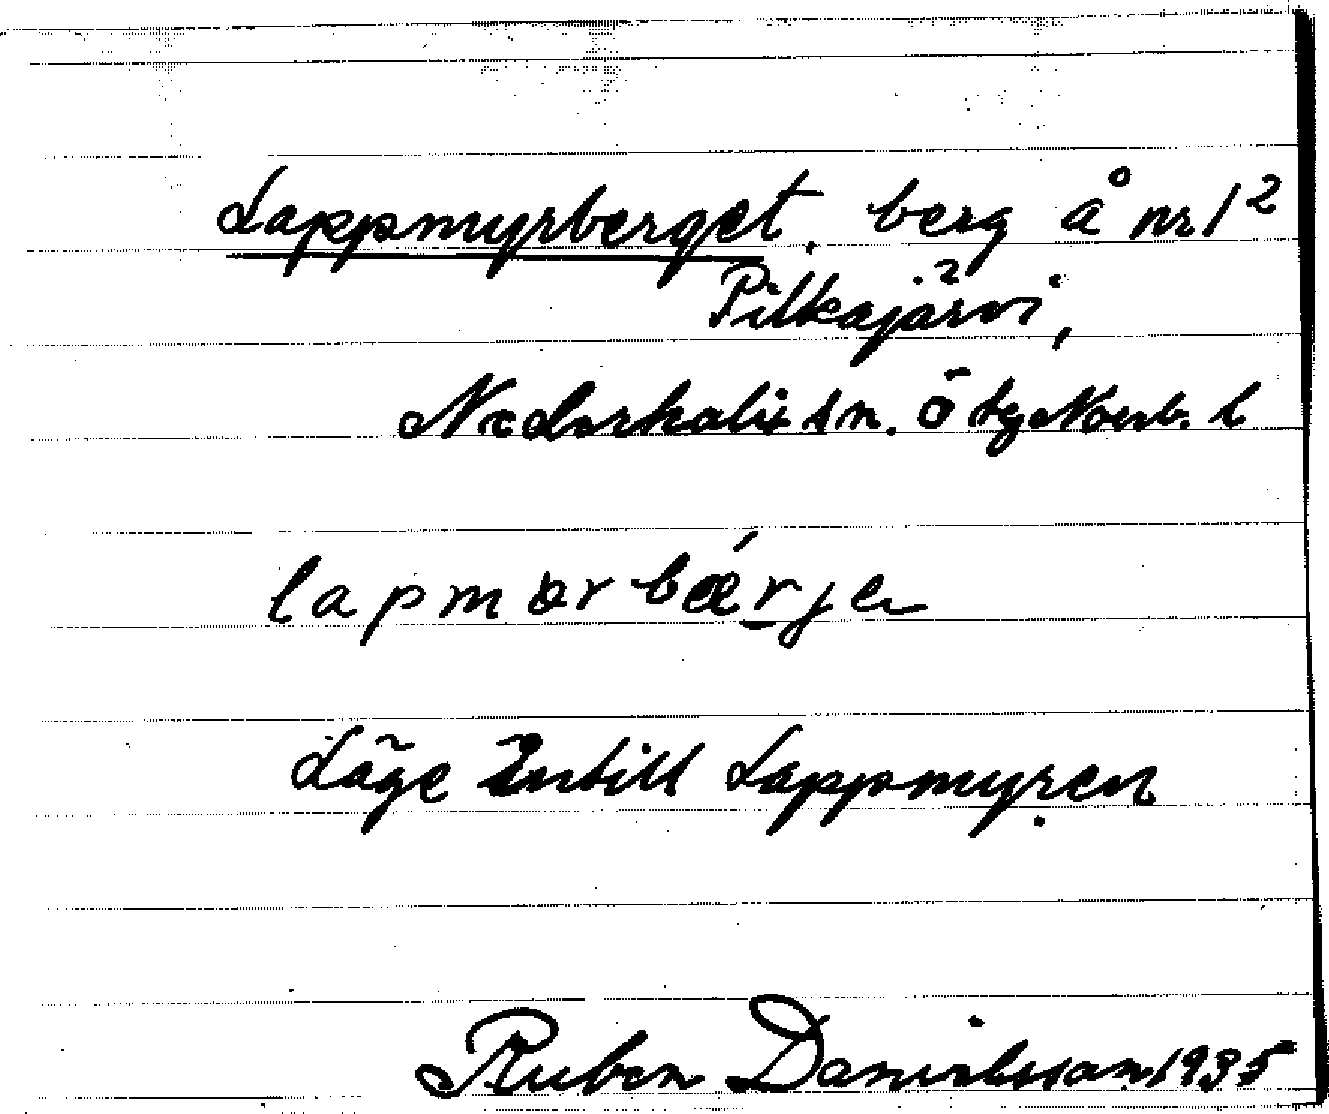 Lappmyrberget, berg å nr 1²
Pilkajärvi,
Nederkalix sn. ö tg Norrb. l
lapmørbǽrje
Läge intill Lappmyren
Ruben Danielsson 1935